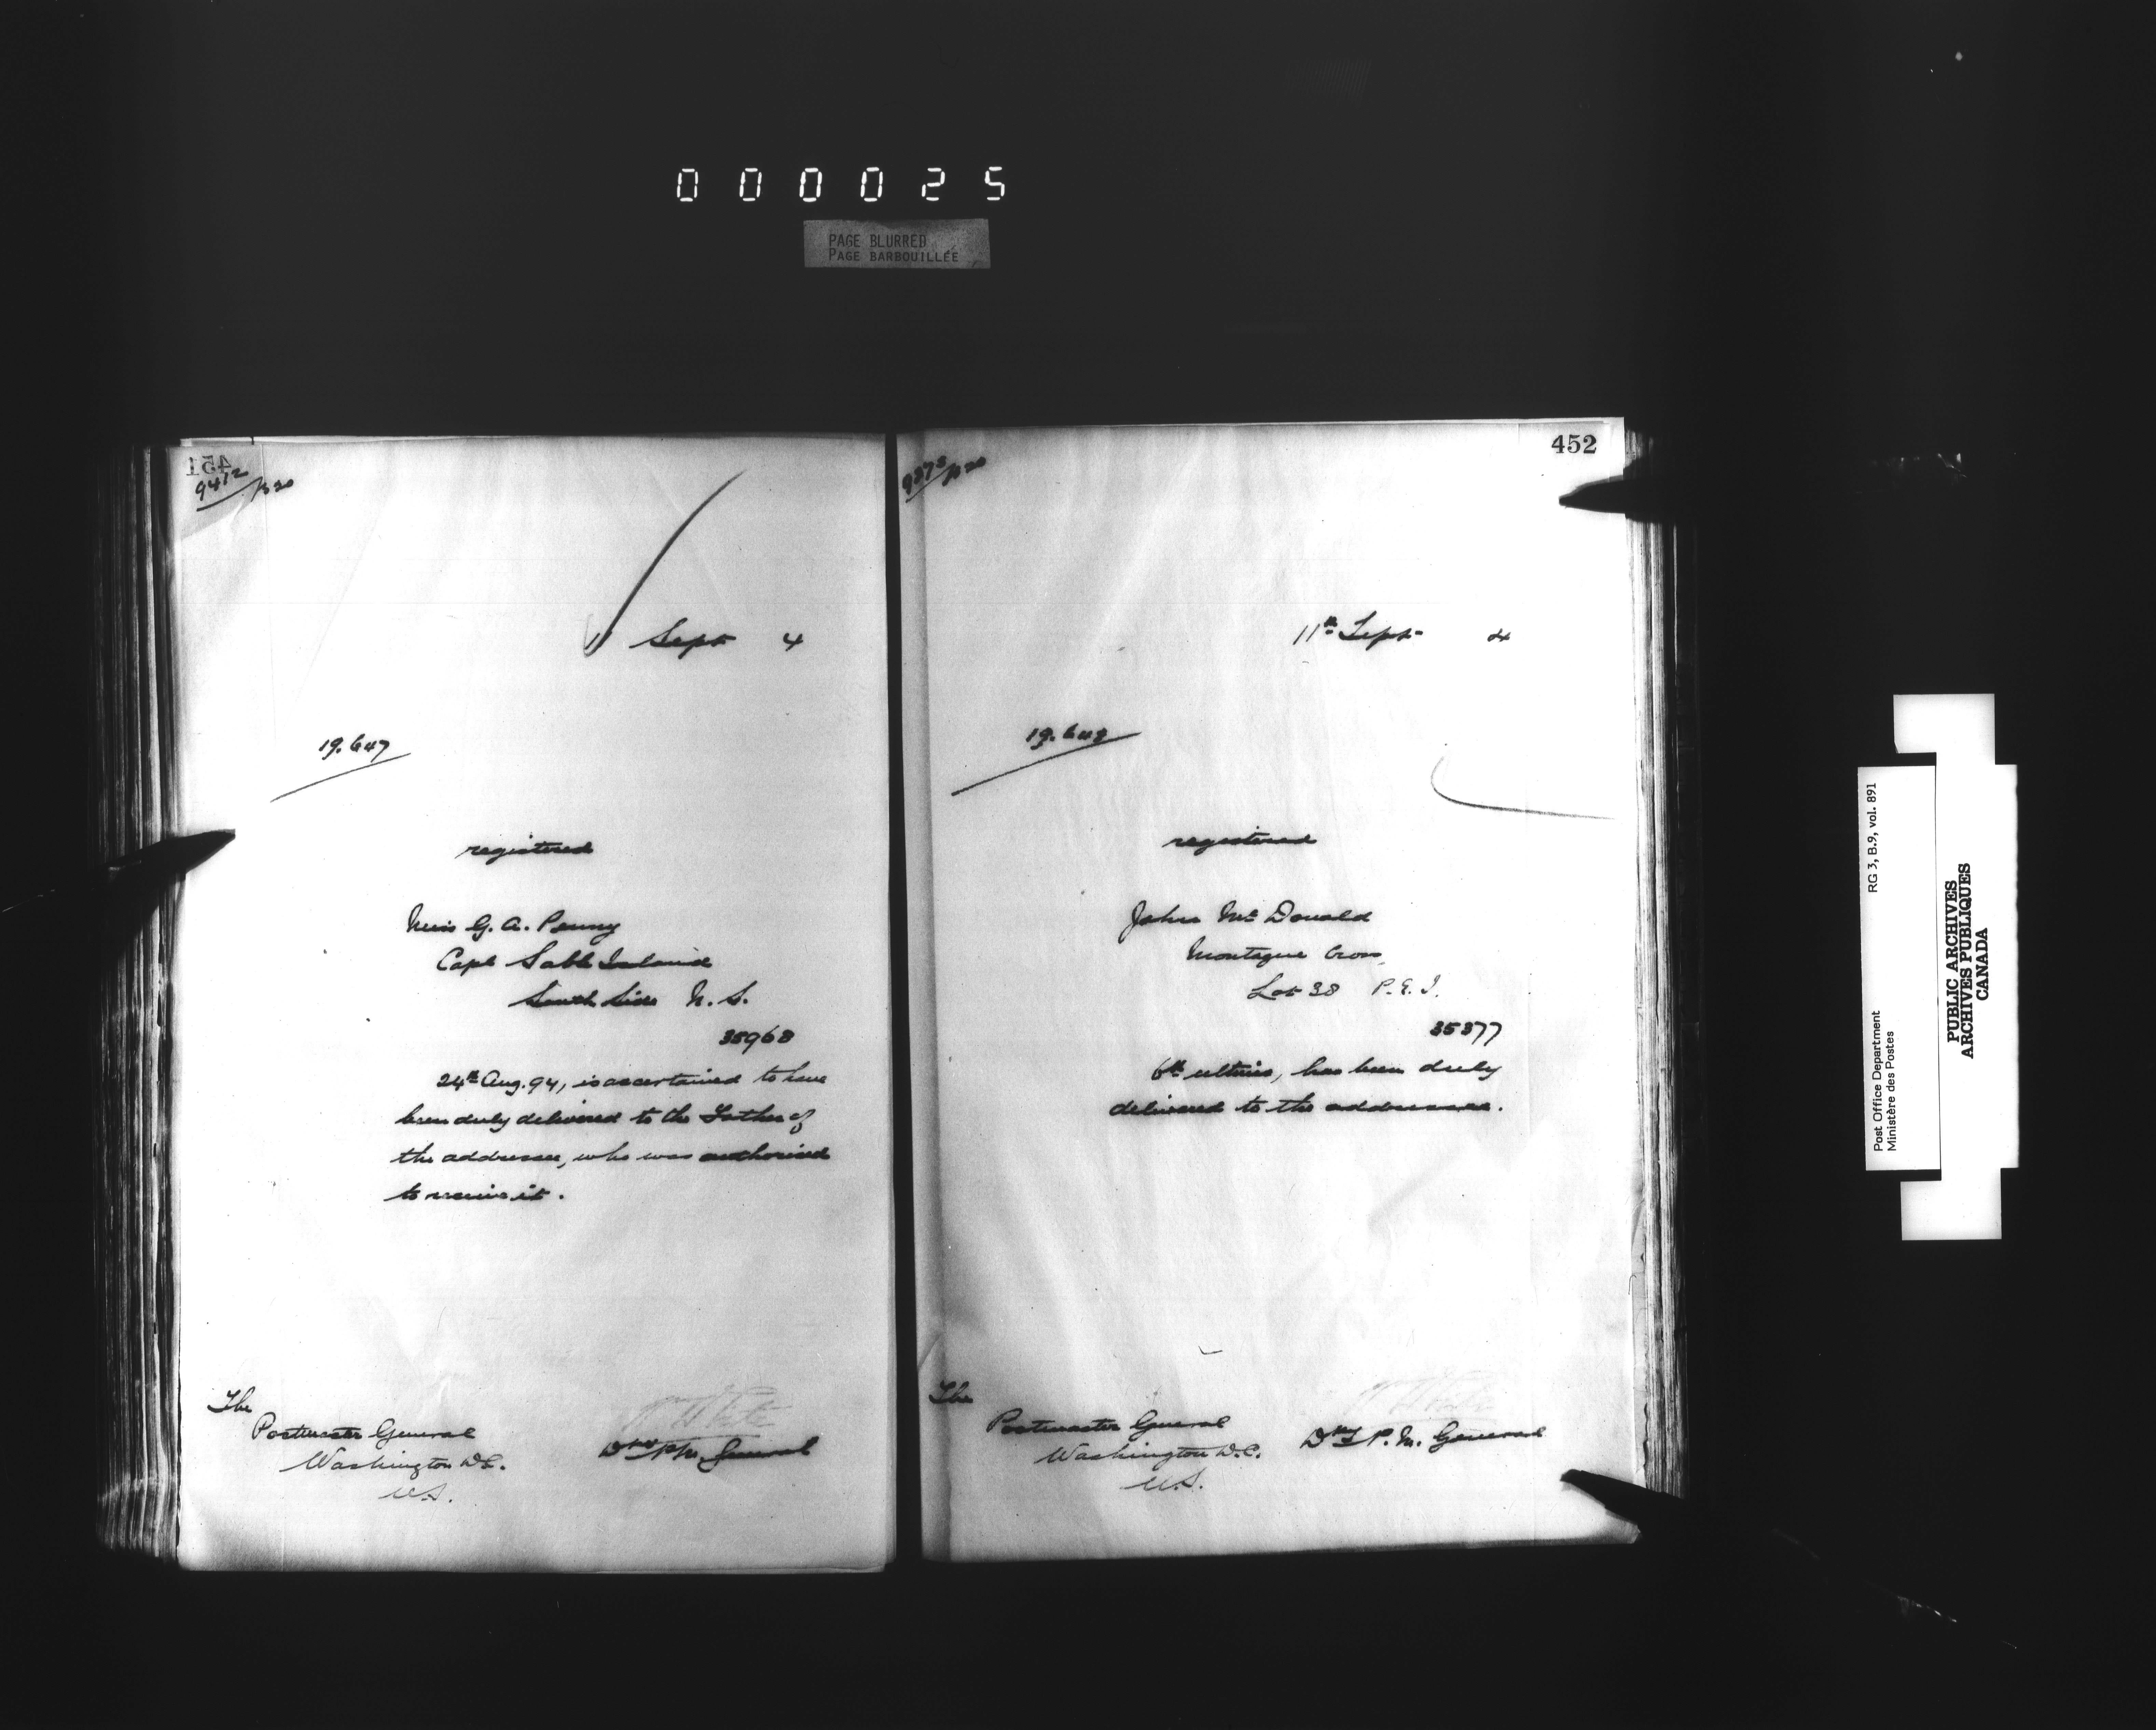 000025
PAGE BLURRED
PAGE BARBOUILLÉE
451
9412/B20
11 Sept 4
19.647
registered
Miss G. A. Penny
Cape Sable Island
South Side N. S.
35968
24th Aug. 94, is ascertained to have
been duly delivered to the Father of
the addressee, who was authorised
to receive it.
The
Postmaster General
Washington D.C.
U.S.
Wm White
Dpty P.M. General
452
11th Sept. 4
19.648
registered
John McDonald
Montague Cross,
Lot 38 P.E.I.
35377
6th ultimo, has been duly
delivered to the addressee.
The
Postmaster General
Washington D.C.
U.S.
Wm White
Dpty P.M. General
RG 3, B.9, vol. 891
Post Office Department
Ministère des Postes
PUBLIC ARCHIVES
ARCHIVES PUBLIQUES
CANADA